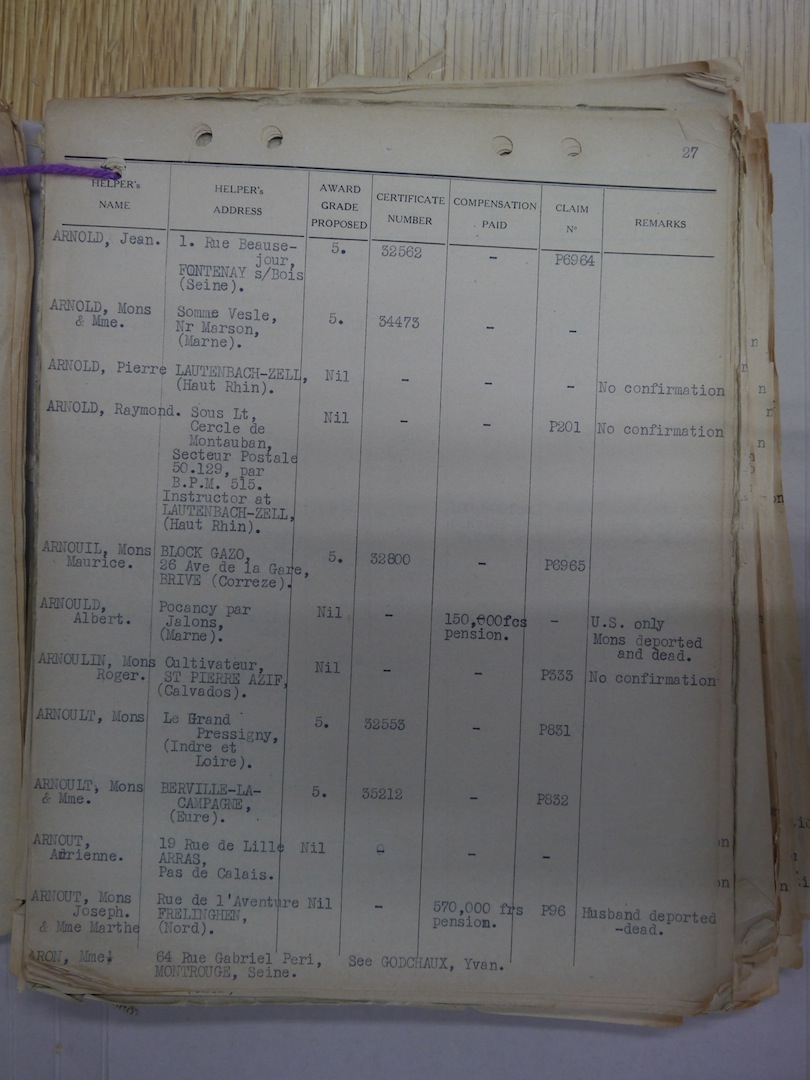 27
HELPER's NAME HELPER's ADDRESS AWARD GRADE PROPOSED CERTIFICATE NUMBER COMPENSATION PAID CLAIM Nº REMARKS
ARNOLD, Jean. 1. Rue Beause- 5. 32562 - P6964
jour,
FONTENAY s/Bois
(Seine).
ARNOLD, Mons Somme Vesle, 5. 34473 - -
& Mme. Nr Marson,
(Marne).
ARNOLD, Pierre LAUTENBACH-ZELL, Nil - - - No confirmation
(Haut Rhin).
ARNOLD, Raymond. Sous Lt, Nil - - P201 No confirmation
Cercle de
Montauban,
Secteur Postale
50.129, par
B.P.M. 515.
Instructor at
LAUTENBACH-ZELL,
(Haut Rhin).
ARNOUIL, Mons BLOCK GAZO, 5. 32800 - P6965
Maurice. 26 Ave de la Gare,
BRIVE (Correze).
ARNOULD, Pocancy par Nil - 150,000fcs - U.S. only
Albert. Jalons, pension. Mons deported
(Marne). and dead.
ARNOULIN, Mons Cultivateur, Nil - - P333 No confirmation
Roger. ST PIERRE AZIF,
(Calvados).
ARNOULT, Mons Le Grand 5. 32553 - P831
Pressigny,
(Indre et
Loire).
ARNOULT, Mons BERVILLE-LA- 5. 35212 - P832
& Mme. CAMPAGNE,
(Eure).
ARNOUT, 19 Rue de Lille Nil - - -
Adrienne. ARRAS,
Pas de Calais.
ARNOUT, Mons Rue de l'Aventure Nil - 570,000 frs P96 Husband deported
Joseph. FRELINGHEN, pension. -dead.
& Mme Marthe (Nord).
ARON, Mme. 64 Rue Gabriel Peri, See GODCHAUX, Yvan.
MONTROUGE, Seine.